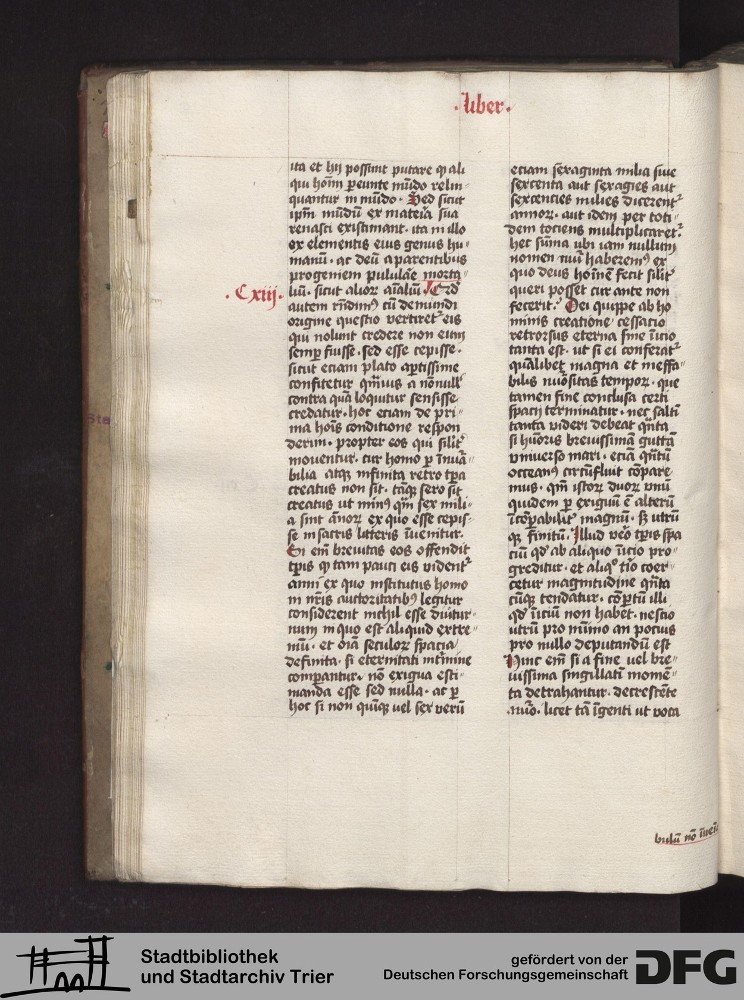 ·liber·
ita et hij possunt putare qꝫ ali
qui hoīm pereunte mūdo relin
quantur in mūdo· Sed sicut
ipm̄ mūdū ex mateia sua
renasci existimant· ita in illo
ex elementis eius genus hu
manū· ac deū a parentibus
progeniem pululāe morta
·Cxiij· liū· sicut alioꝝ aīaliū·
autem rn̄dimꝰ cū de mundi
origine questio vertiretᷣ eis
qui nolunt credere non eum
semp̱ fuisse· sed esse cepisse·
sicut eciam plato ap̱tissime
confitetur qm̄uis a nōnull'
contra quā loquitur sensisse
credatur· hoc eciam de pri
ma hoīs conditione respon
derim· propter eos qui silit'
moventur· cur homo p̱ īnuā
bilia atqꝫ infinita retro tp̱a
creatus non sit· tāqꝫ sero sit
creatus ut minꝰ qm̄ sex mili
a sint ānoꝝ ex quo esse cepis
se in sacris litteris īuenitur·
Si em̄ breuitas eos offendit
tp̱is qꝫ tam pauci eis videntᷣ
anni ex quo institutus homo
in nr̄is auctoritatibꝰ legitur
considerent nichil esse diutur
num in quo est aliquid extre
mū· et oīa seculoꝝ spacia
definita· si eternitati int̄mine
comparantur· nō exigua esti
manda esse sed nulla· ac p̱
hoc si non quīqꝫ vel sex verū
eciam sexaginta milia siue
sexcenta aut sexagies aut
sexcencies milies dicerentᷣ
annoꝝ· aut idem per toti
dem tociens multiplicaretᷣ·
hec sūma ubi iam nullum
nomen nūi haberemꝰ ex
quo deus hoīnē fecit silit'
queri posset cur ante non
fecerit· Dei quippe ab ho
minis creatione cessacio
retrorsus eterna sine īicio
tanta est· ut si ei conferatᷣ
quālibet magna et ineffa
bilis nūositas tempoꝝ· que
tamen fine conclusa certi
spacij terminatur· nec saltī
tanta videri debeat qn̄ta
si hūoris breuissimā guttā
vniuerso mari· eciā qn̄tū
occeanꝰ circūfluit cōpare
mus· qm̄ istoꝝ duoꝝ vnū
quidem p̱ exiguū ē alterū
īcōpabilit' magnū· sꝫ utrū
qꝫ finitū· Illud vēo tp̱is spa
ciū qd' ab aliquo īicio pro
greditur· et aliqº t'io coer
cetur magnitudine qn̄ta
cūqꝫ tendatur· cōpatū illi
qd' īiciū non habet· nescio
utrū pro minimo an pocius
pro nullo deputandū est
Hinc em̄ si a fine vel bre
uissima singillati momē
ta detrahantur· decrescēte
nūo· licet tā īgenti ut voca
bulū nō
Stadtbibliothek
und Stadtarchiv Trier
gefördert von der
Deutschen Forschungsgemeinschaft
DFG